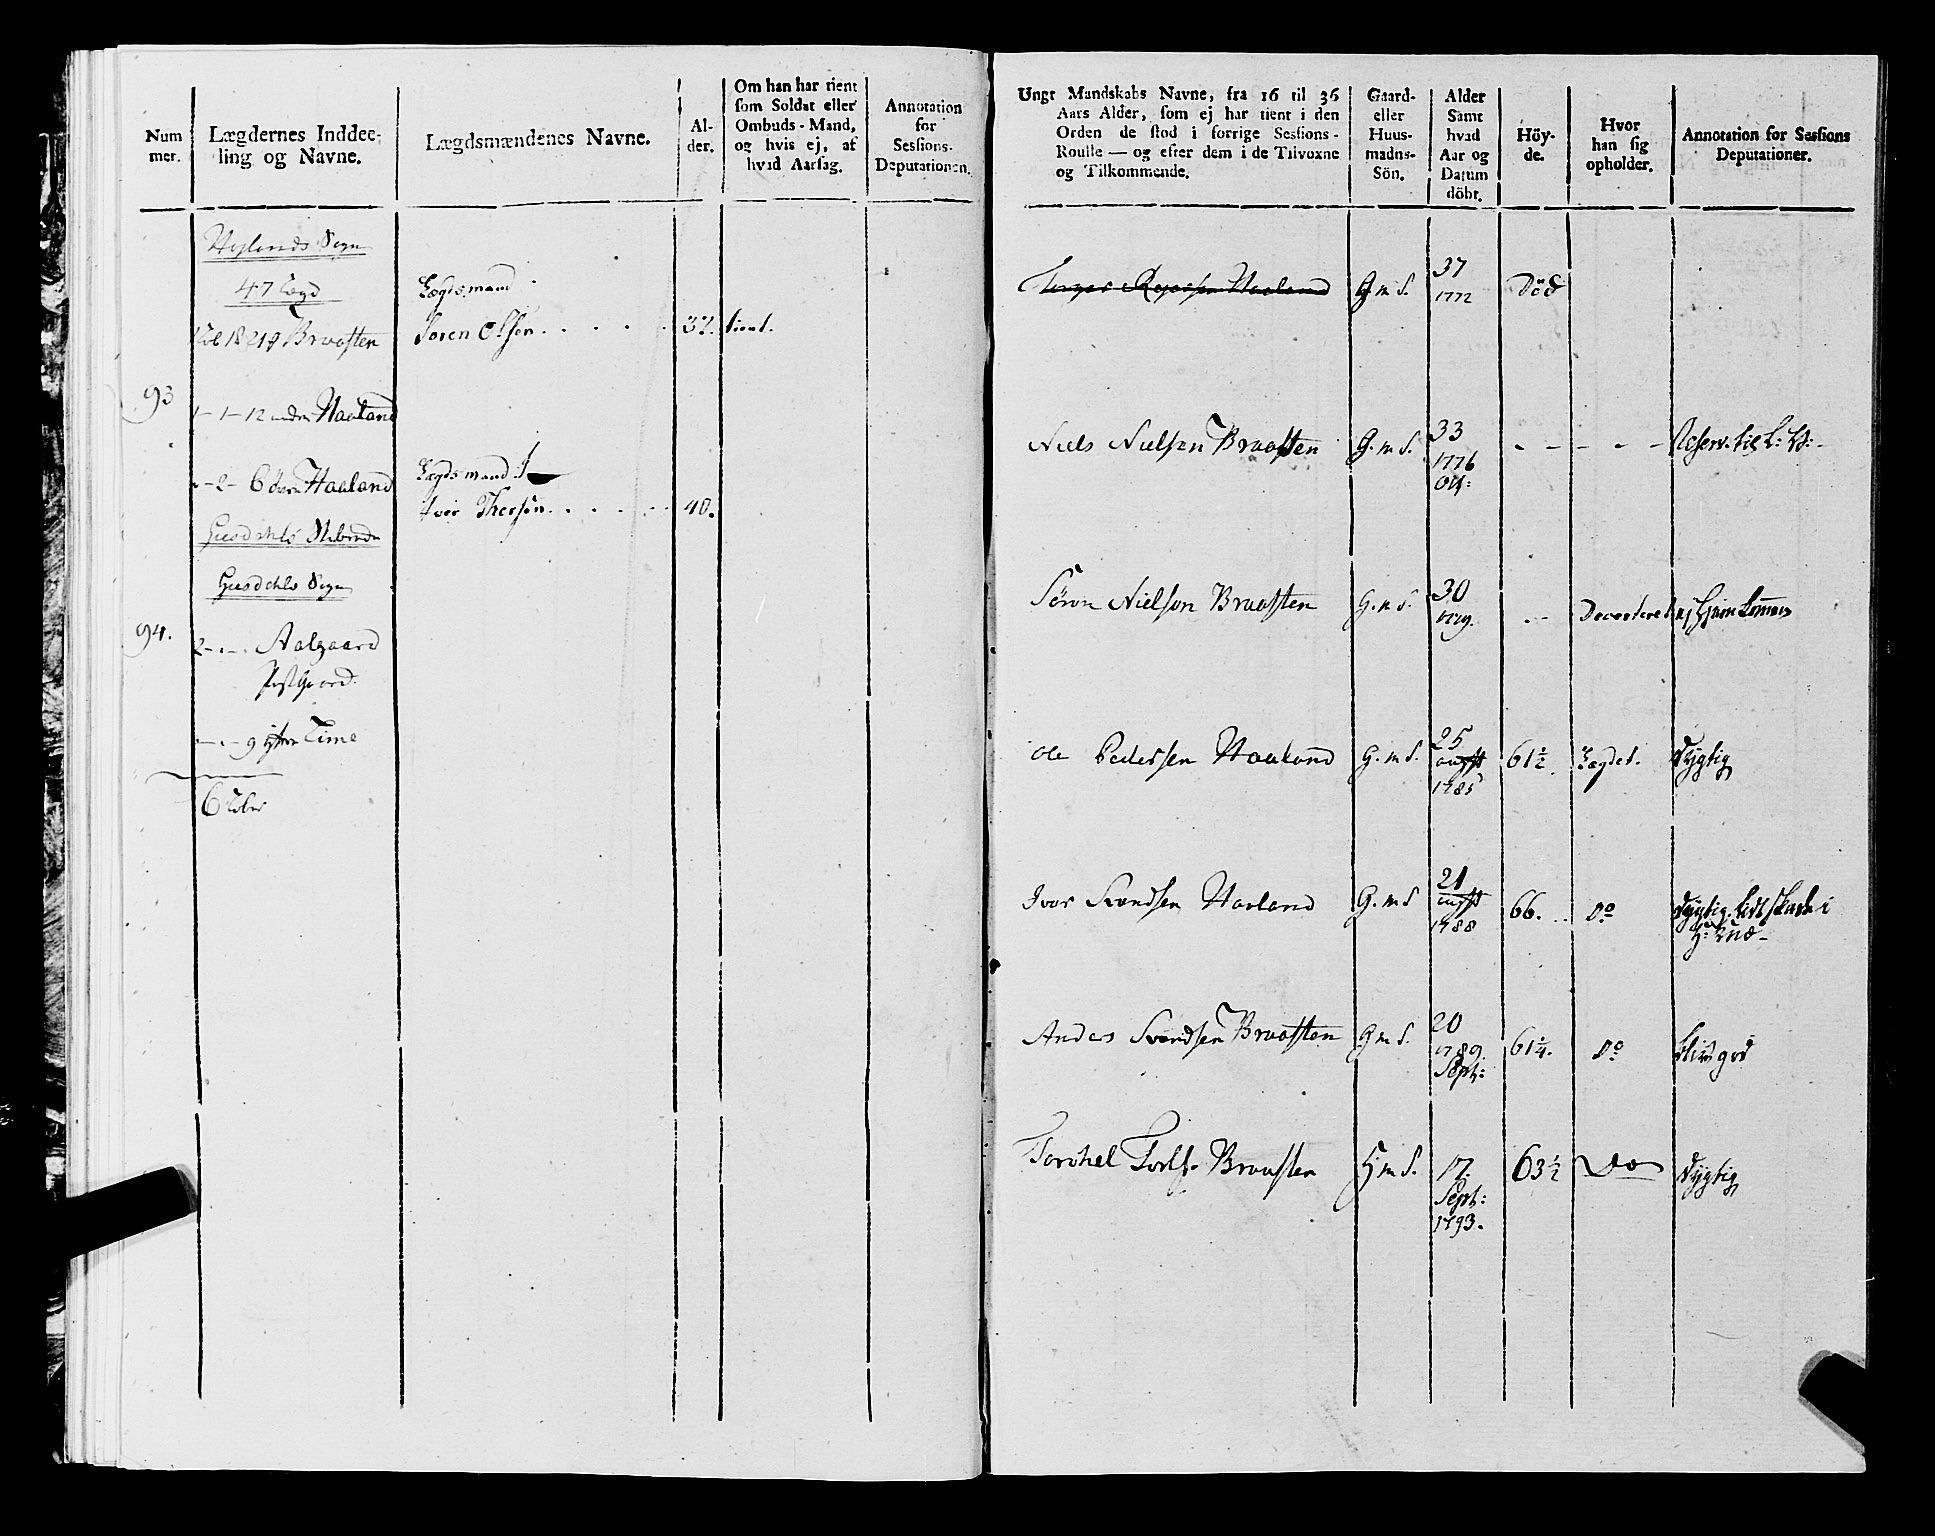 Num
mer.
Lægdernes Inddee-
ling og Navne.
Lægdsmændenes Navne.
Al-
der.
Om han har tient
som Soldat eller
Ombuds-Mand,
og hvis ej, af
hvad Aarsag.
Annotation
for
Sessions-
Deputationen.
Høylands Sogn
47 Lægd
Braasten
Lægdsmand
Sören Olsen
37. tient.
93
1-1-12 Haaland
-2-6 Haaland
Lægdsmand
Iver
40.
Giesdahls
Giesdahls Sogn
94.
2 Aalgaard
9 Time
6
Ungt Mandskabs Navne, fra 16 til 36
Aars Alder, som ej har tient i den
Orden de stod i forrige Sessions-
Roulle — og efter dem i de Tilvoxne
og Tilkommende.
Gaard-
eller
Huus-
madns-
Sön.
Alder
Samt
hvad
Aar og
Datum
döbt.
Höy-
de.
Hvor
han sig
opholder.
Annotation for Sessions
Deputationer.
Haaland G m S. 37 1772 Död
Niels Nielsen Braasten G. m S. 33 1776 Reserv. til
Sören Nielsen Braasten G. m S. 30 1779. Deserteret ej hjem kommen
Ole Pedersen Haaland G. m S. 25 1785 61½ Lægdet. Dygtig
Iver Svendsen Haaland G. m S 21 1788 66. Do Dygtig. lidt skade i
H: Knæ
Anders Svendsen Braasten G m S. 20 1789. Sept: 61¼. Do bliver god
Torchel Torls. Braasten H m S. 17. Sept: 1793. 63½ Do Dygtig